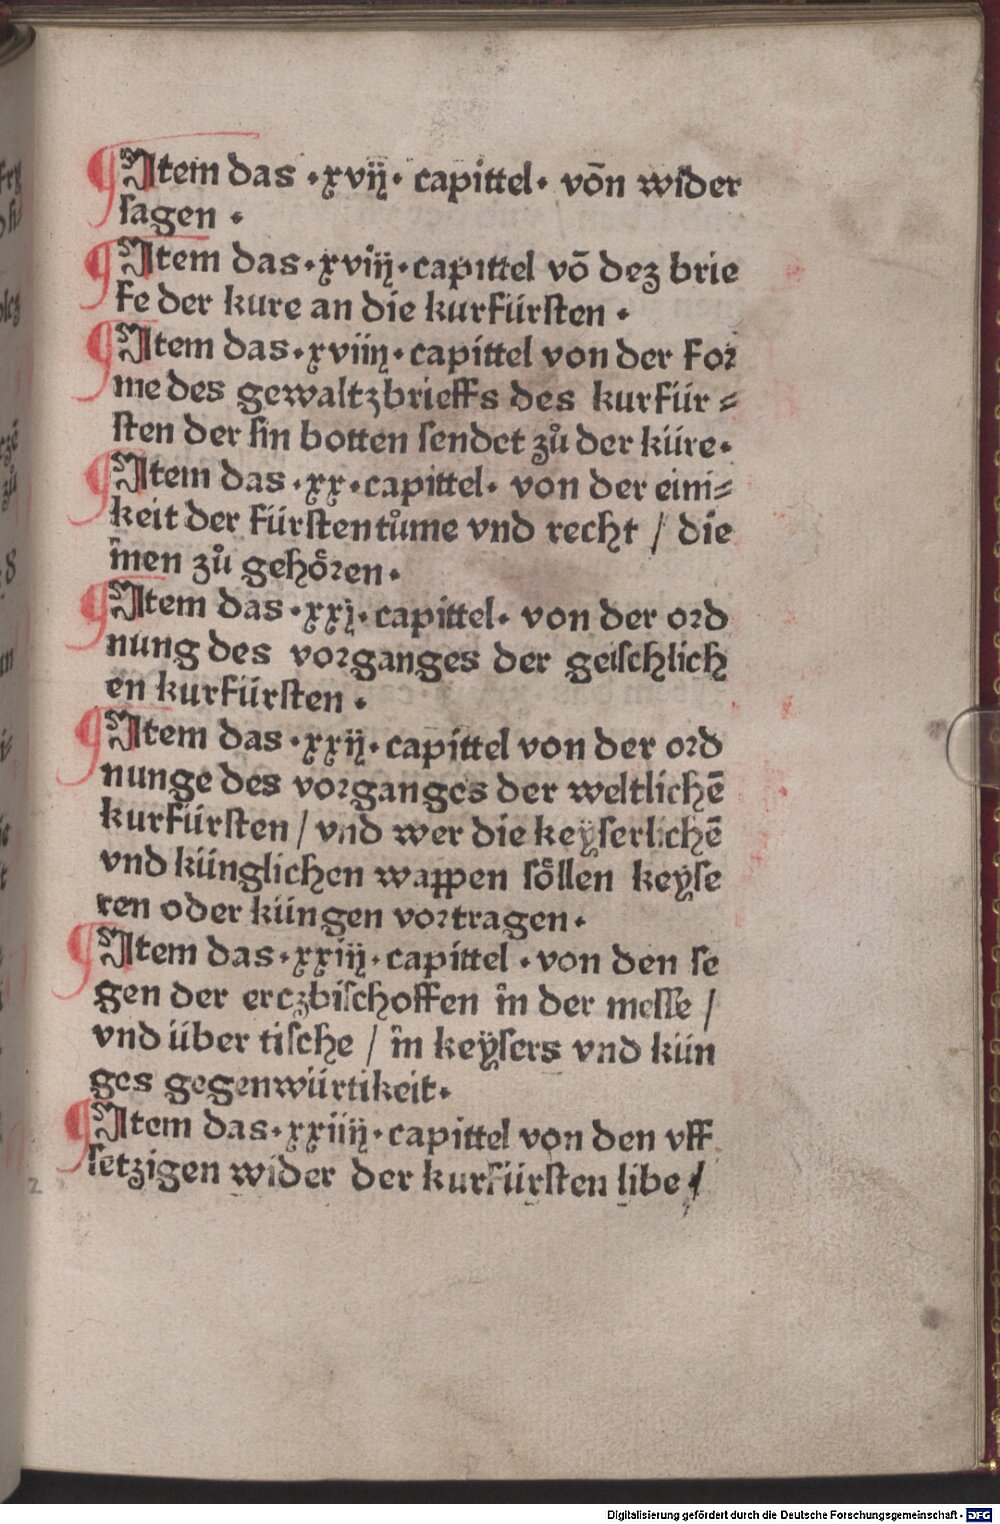 ¶ Item das ·xvij· capittel· võn wider
sagen ·
¶ Item das·xviij·capittel võ dez brie
fe der kure an die kurfürsten ·
¶ Item das·xviiij·capittel von der For
me des gewaltzbrieffs des kurfür⸗
sten der sin botten sendet zů der küre·
¶ Item das ·xx·capittel· von der eini⸗
keit der fürstentůme vnd recht / die
inen zů gehören·
¶ Item das ·xxj·capittel· von der ord
nung des vorganges der geischlich
en kurfürsten ·
¶ Item das ·xxij·capittel von der ord
nunge des vorganges der weltlichē
kurfürsten / vnd wer die keyserlichē
vnd künglichen wappen söllen keyse
ren oder küngen vortragen·
¶ Item das·xxiij·capittel ·von den se
gen der erczbischoffen in der messe /
vnd über tische / in keÿsers vnd kün
ges gegenwürtikeit·
¶ Item das·xxiiij·capittel von den vff
setzigen wider der kurfürsten libe /
Digitalisierung gefördert durch die Deutsche Forschungsgemeinschaft - DFG